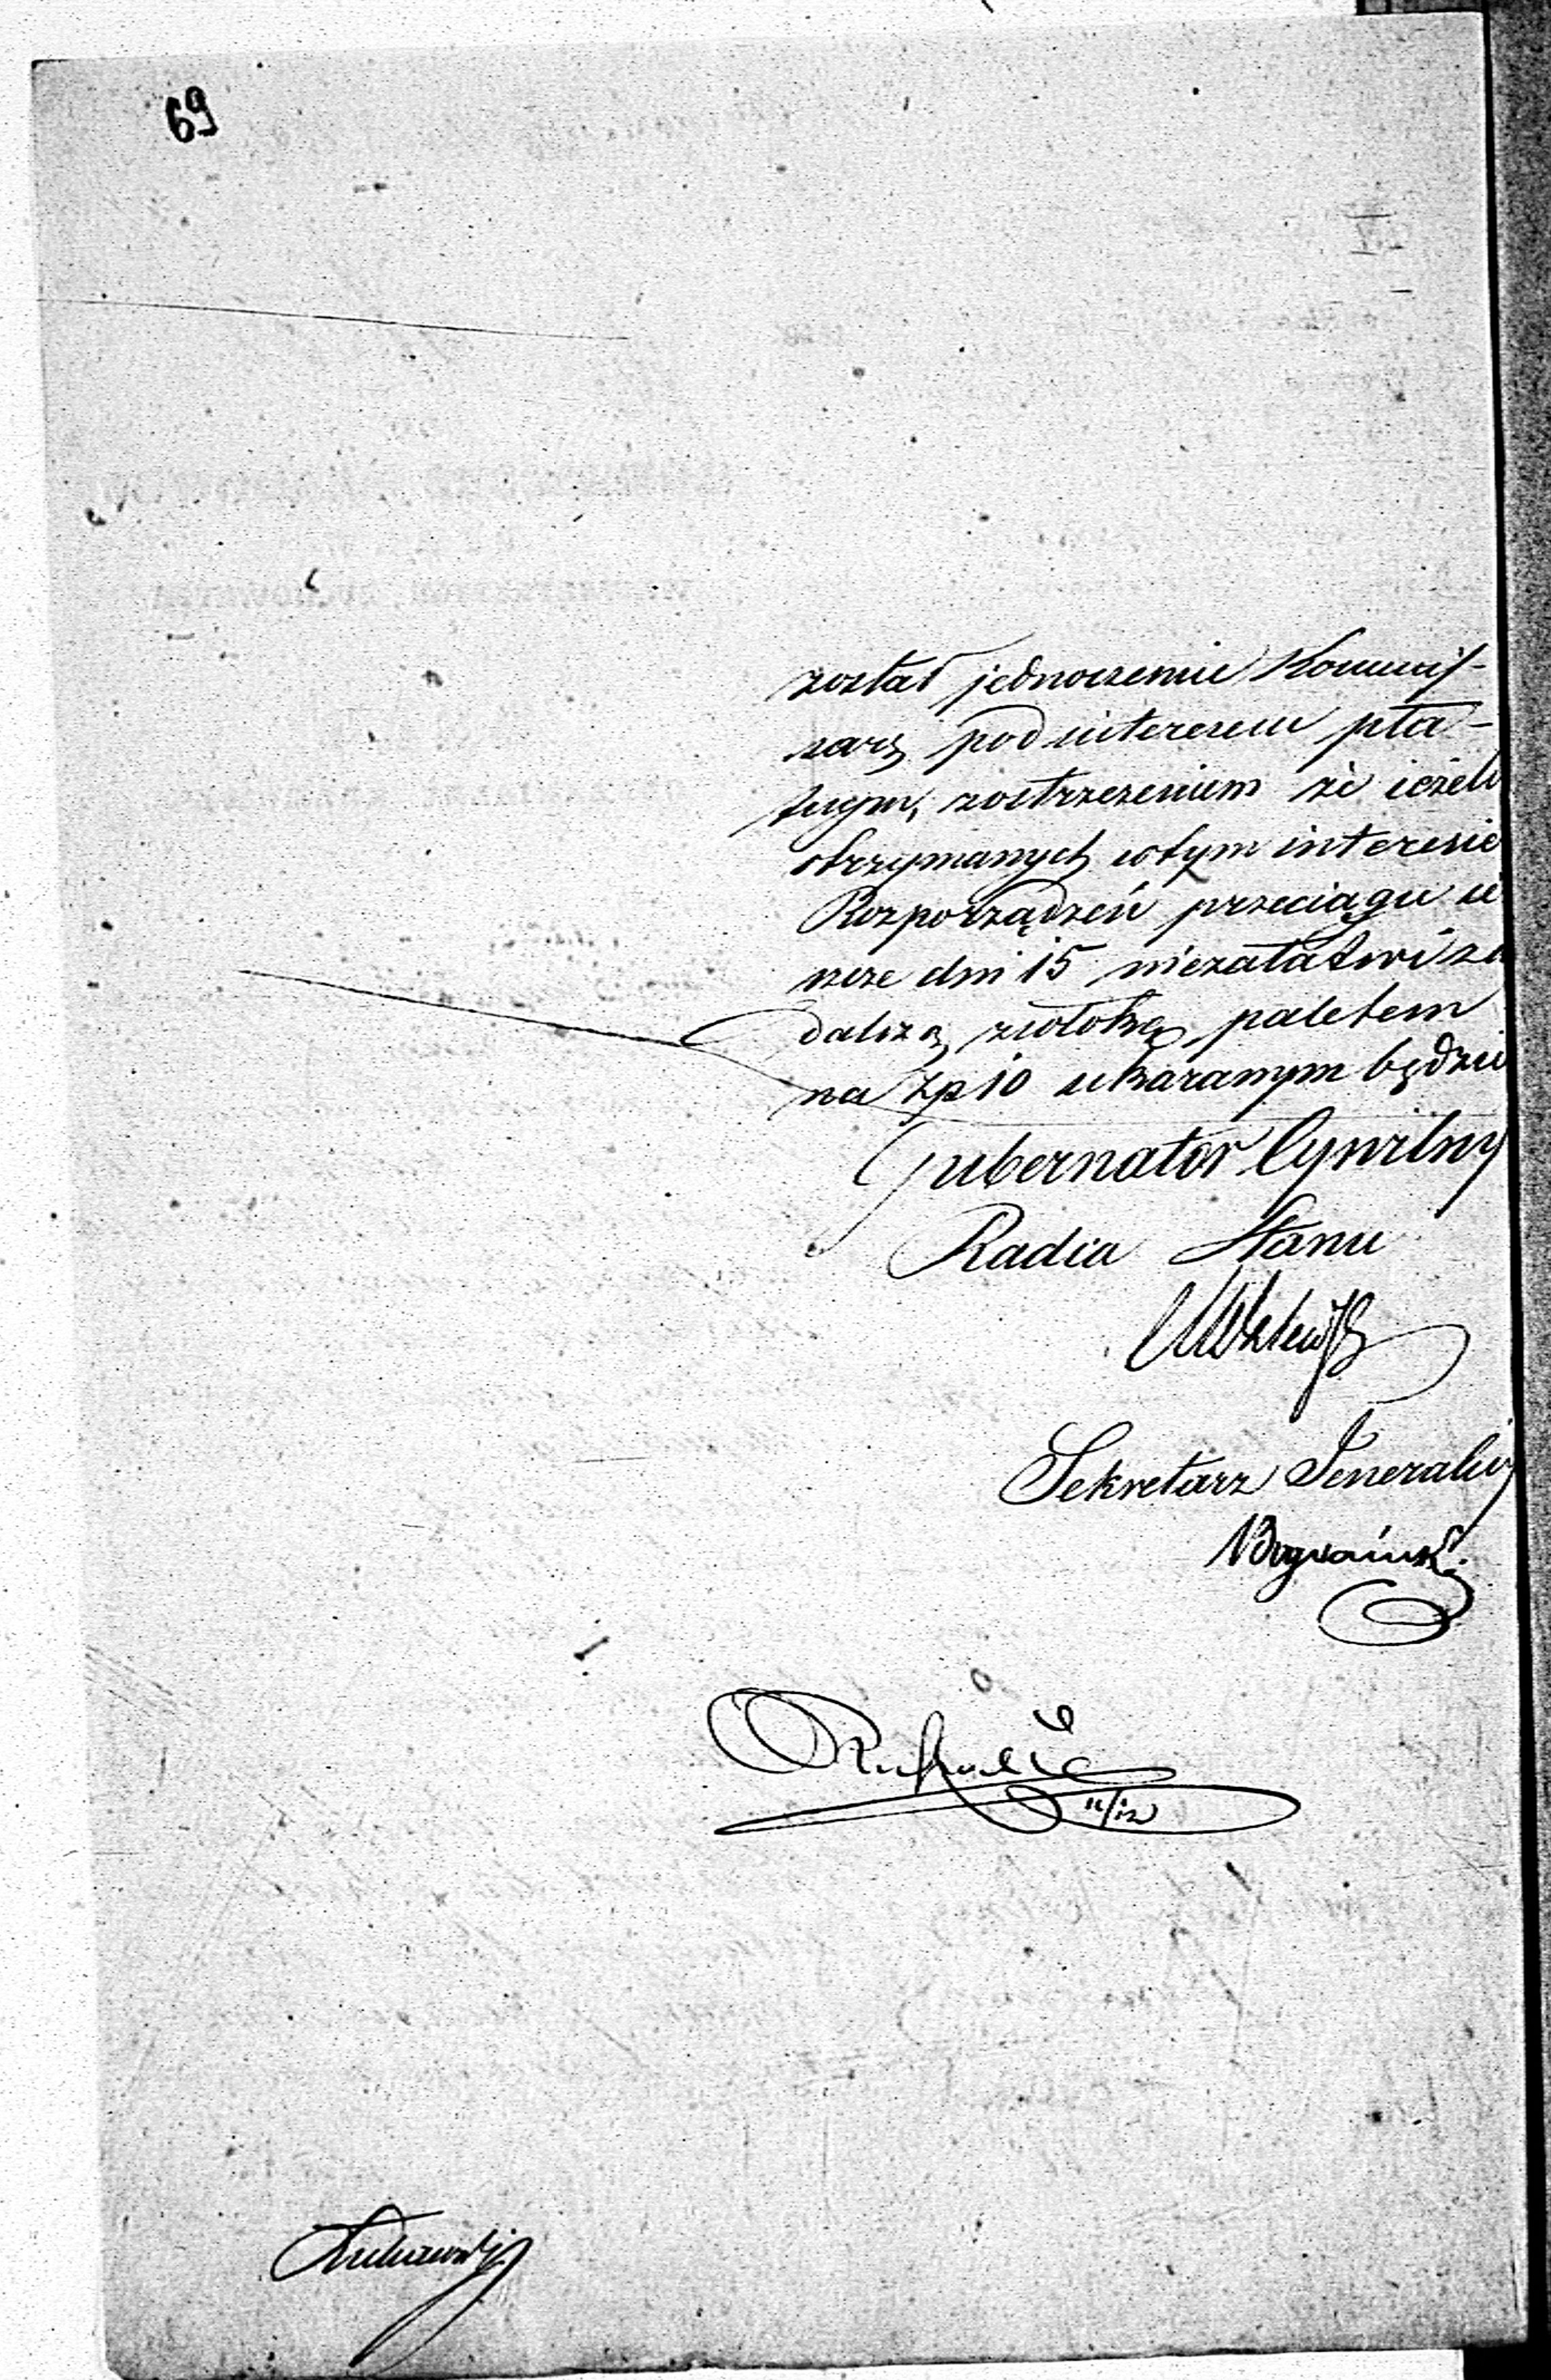 69
został jednocześnie Kommis-
sarz pod interesem pła-
tnym, zostrzeżeniem że ieżeli
otrzymanych wtym interesie
Rozporządzeń przeciągu ie
szcze dni 15 niezałatwi za
dalszą zwłokę paletem
na Zp 10 ukaranym będzie
Gubernator Cywilny
Radca Stanu
Sekretarz Jeneralny
11/12